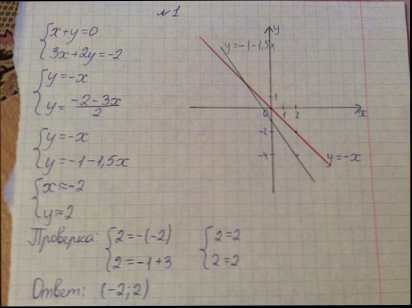 №1
{x+y=0
{3x+2y=-2
{y=-x
{y=(-2-3x)/2
{y=-x
{y=-1-1,5x
{x=-2
{y=2
Проверка: {2=-(-2) {2=2
{2=-1+3 {2=2
Ответ: (-2; 2)
y
y=-1-1,5x
1
0 1 2 x
-2
-4
y=-x